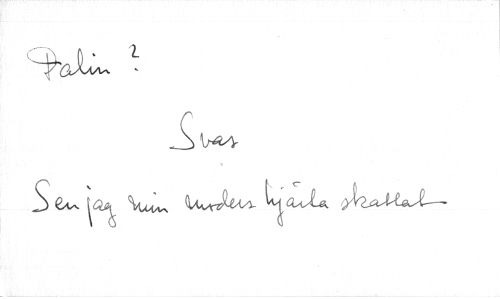 Dalin?
Svar
Sen jag min moders hjärta skattat